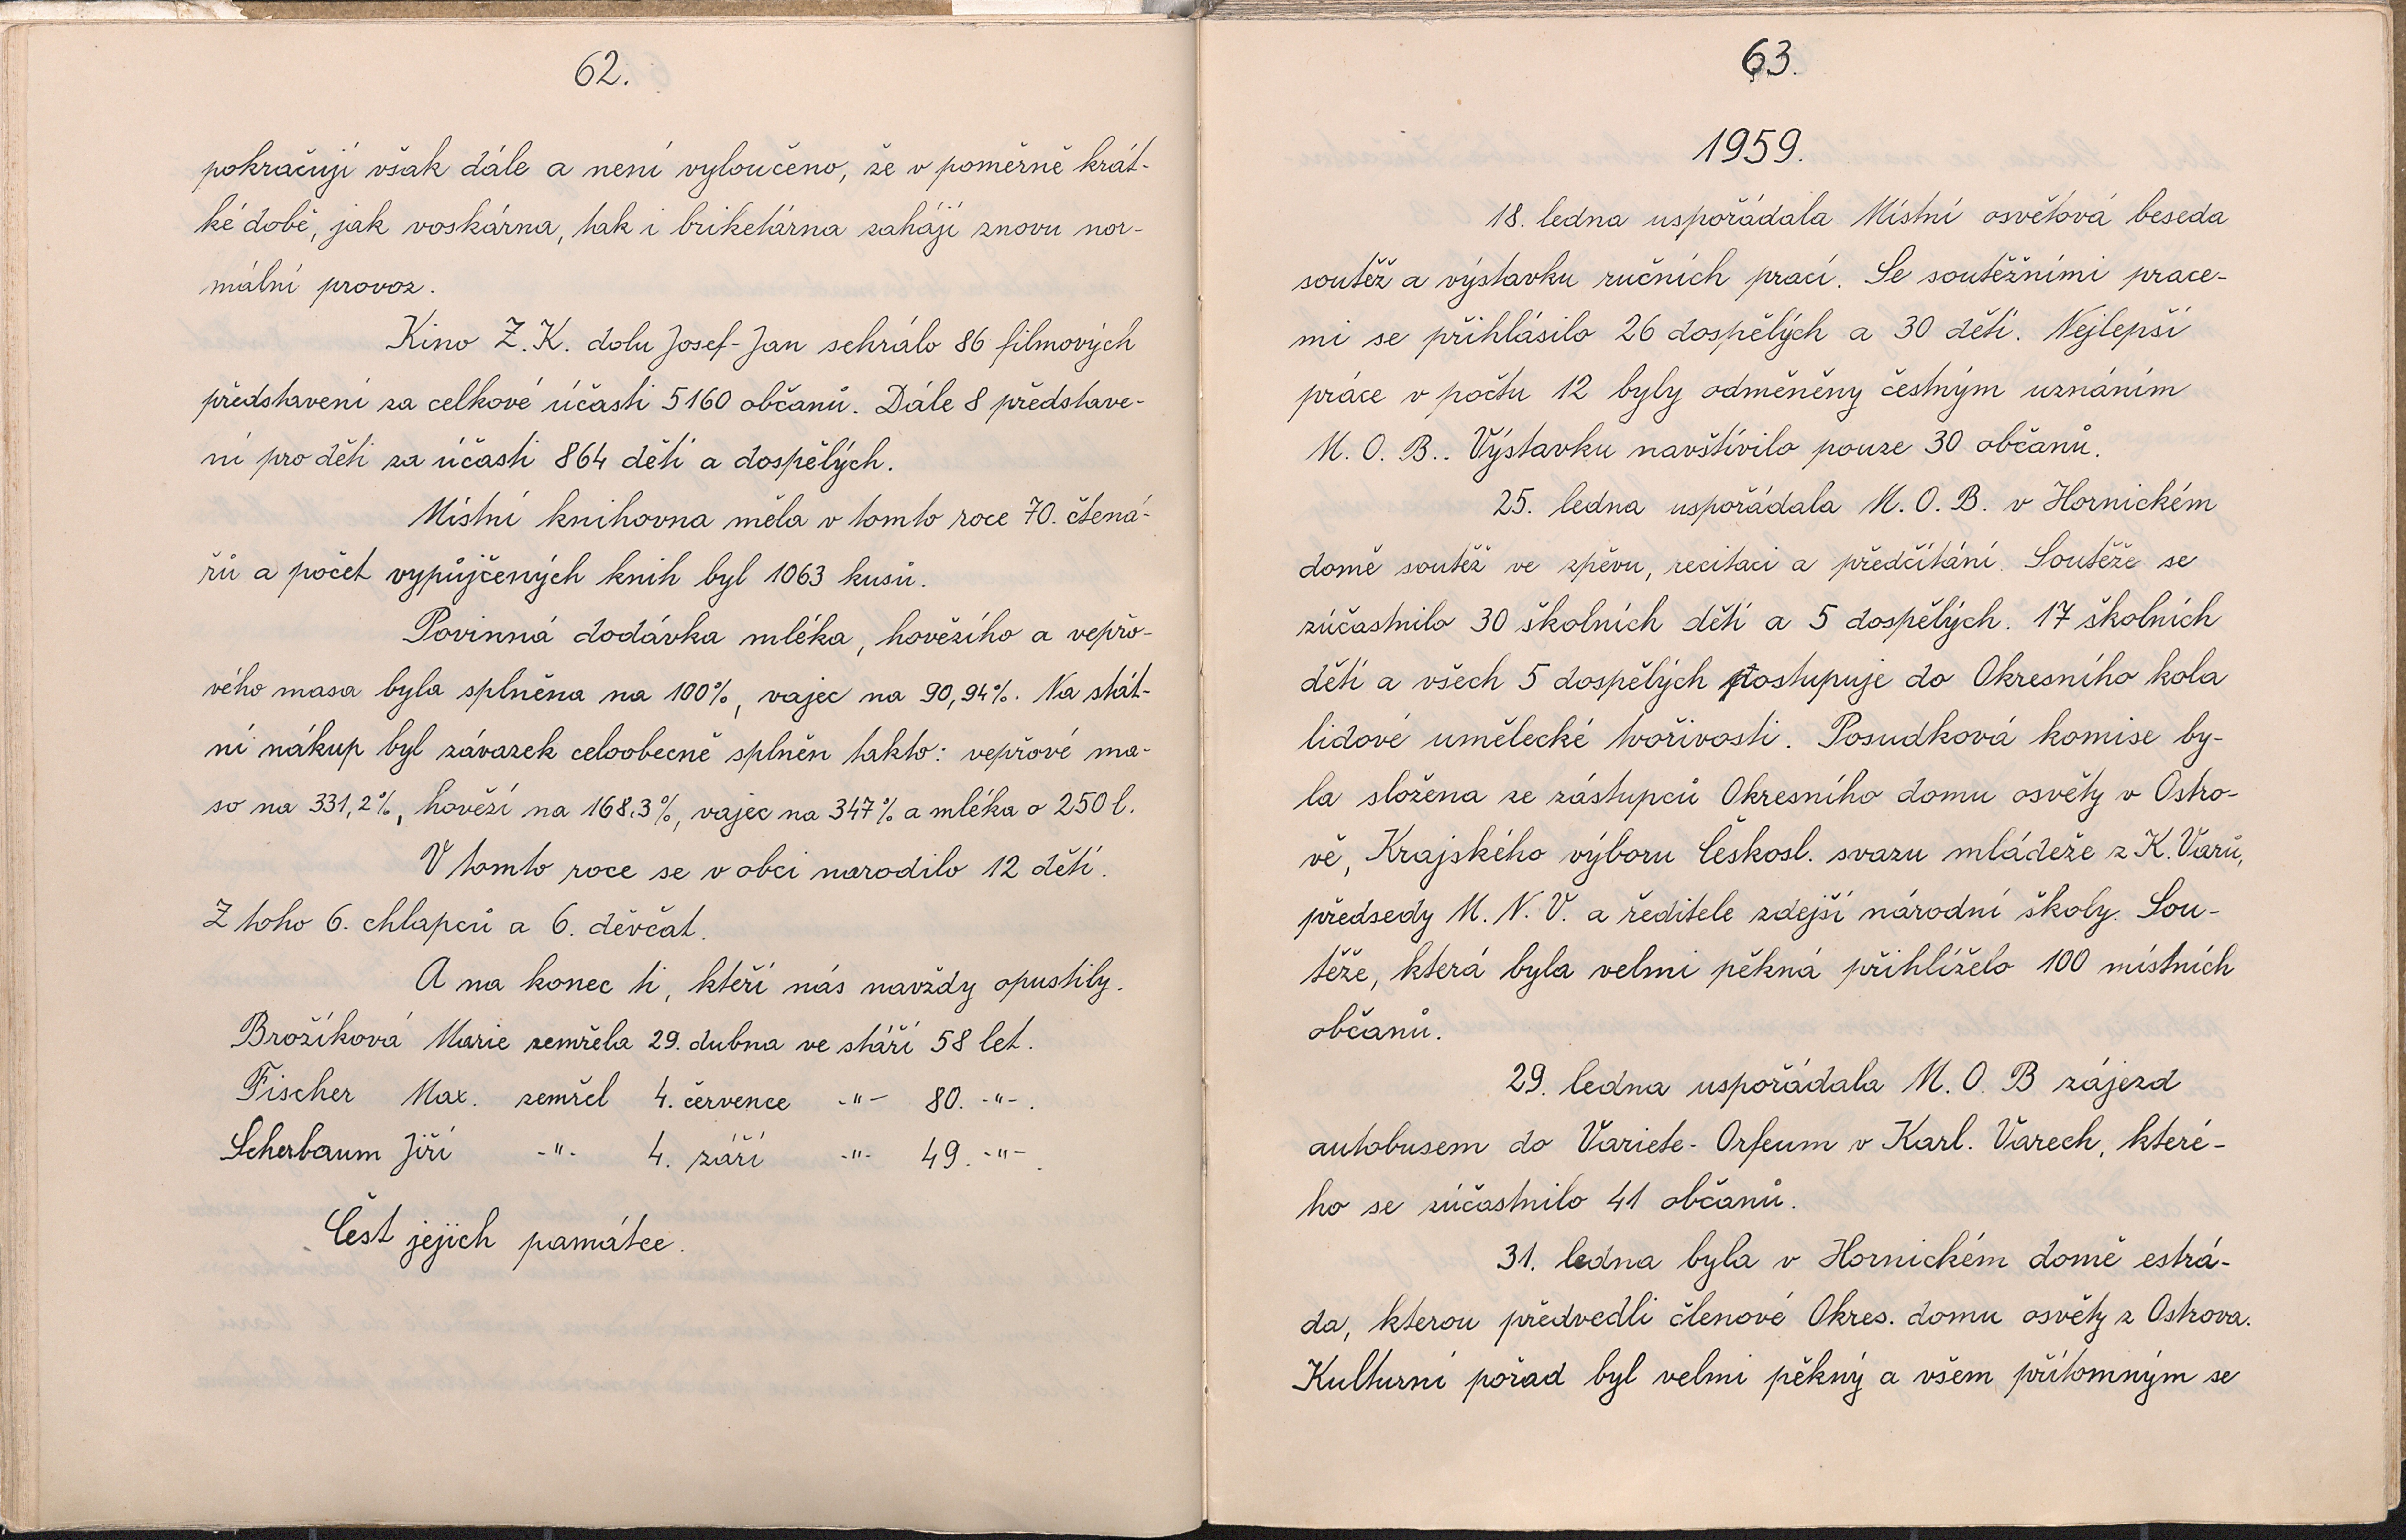 62.
pokračují však dále a není vyloučeno, že v poměrně krát-
ké době, jak voskárna, tak i briketárna zahájí znovu nor-
mální provoz.
Kino Z. K. dolu Josef-Jan sehrálo 86 filmových
představení za celkové účasti 5160 občanů. Dále 8 představe-
ní pro děti za účasti 864 dětí a dospělých.
Místní knihovna měla v tomto roce 70. čtená-
řů a počet vypůjčených knih byl 1063 kusů.
Povinná dodávka mléka, hovězího a vepřo-
vého masa byla splněna na 100%, vajec na 90,94%. Na stát-
ní nákup byl závazek celoobecně splněn takto: vepřové ma-
so na 331,2%, hovězí na 168.3%, vajec na 347% a mléka o 250 l.
V tomto roce se v obci narodilo 12 dětí.
Z toho 6. chlapců a 6. děvčat.
A na konec ti, kteří nás navždy opustily.
Brožíková Marie zemřela 29. dubna ve stáří 58 let.
Fischer Max. zemřel 4. července -"- 80. -"-.
Scherbaum Jiří -"- 4. září -"- 49. -"-.
Čest jejich památce.
63.
1959.
18. ledna uspořádala Místní osvětová beseda
soutěž a výstavku ručních prací. Se soutěžními prace-
mi se přihlásilo 26 dospělých a 30 dětí. Nejlepší
práce v počtu 12 byly odměněny čestným uznáním
M. O. B.. Výstavku navštívilo pouze 30 občanů.
25. ledna uspořádala M. O. B. v Hornickém
domě soutěž ve zpěvu, recitaci a předčítání. Soutěže se
zúčastnilo 30 školních dětí a 5 dospělých. 17 školních
dětí a všech 5 dospělých postupuje do Okresního kola
lidové umělecké tvořivosti. Posudková komise by-
la složena ze zástupců Okresního domu osvěty v Ostro-
vě, Krajského výboru Českosl. svazu mládeže z K. Varů,
předsedy M. N. V. a ředitele zdejší národní školy. Sou-
těže, která byla velmi pěkná přihlíželo 100 místních
občanů.
29. ledna uspořádala M. O. B zájezd
autobusem do Variete- Orfeum v Karl. Varech, které-
ho se zúčastnilo 41 občanů.
31. ledna byla v Hornickém domě estrá-
da, kterou předvedli členové Okres. domu osvěty z Ostrova.
Kulturní pořad byl velmi pěkný a všem přítomným se